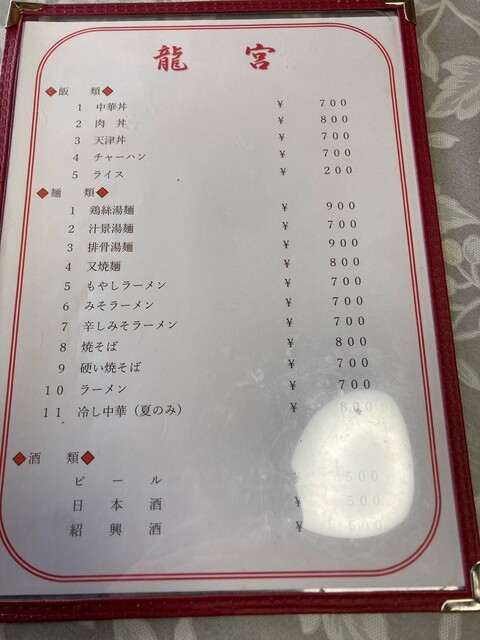 龍 宮
◆飯 類◆
1 中華丼 ¥ 700
2 肉 丼 ¥ 800
3 天津丼 ¥ 700
4 チャーハン ¥ 700
5 ライス ¥ 200
◆麺 類◆
1 鶏絲湯麺 ¥ 900
2 汁景湯麺 ¥ 700
3 排骨湯麺 ¥ 900
4 又焼麺 ¥ 800
5 もやしラーメン ¥ 700
6 みそラーメン ¥ 700
7 辛しみそラーメン ¥ 700
8 焼そば ¥ 800
9 硬い焼そば ¥ 700
10 ラーメン ¥ 700
11 冷し中華（夏のみ） ¥ 800
◆酒 類◆
ビ ー ル ¥ 500
日 本 酒 ¥ 500
紹 興 酒 ¥ 500